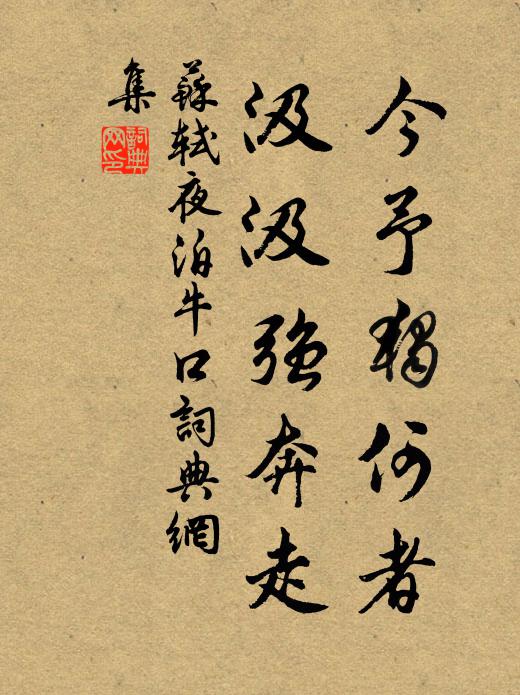 今予獨何者
汲汲強奔走
蘇軾夜泊牛口詞典網
集
詞典網印